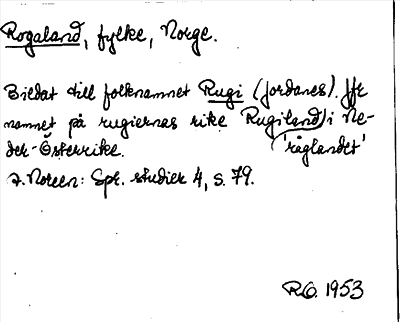 Rogaland, fylke, Norge.
Bildat till folknamnet Rugi (Jordanes). Jfr
namnet på rugiernas rike Rugiland i Ne-
der-Österrike. 'råglandet'
A. Noreen: Spr. studier 4, s. 79.
R.O. 1953